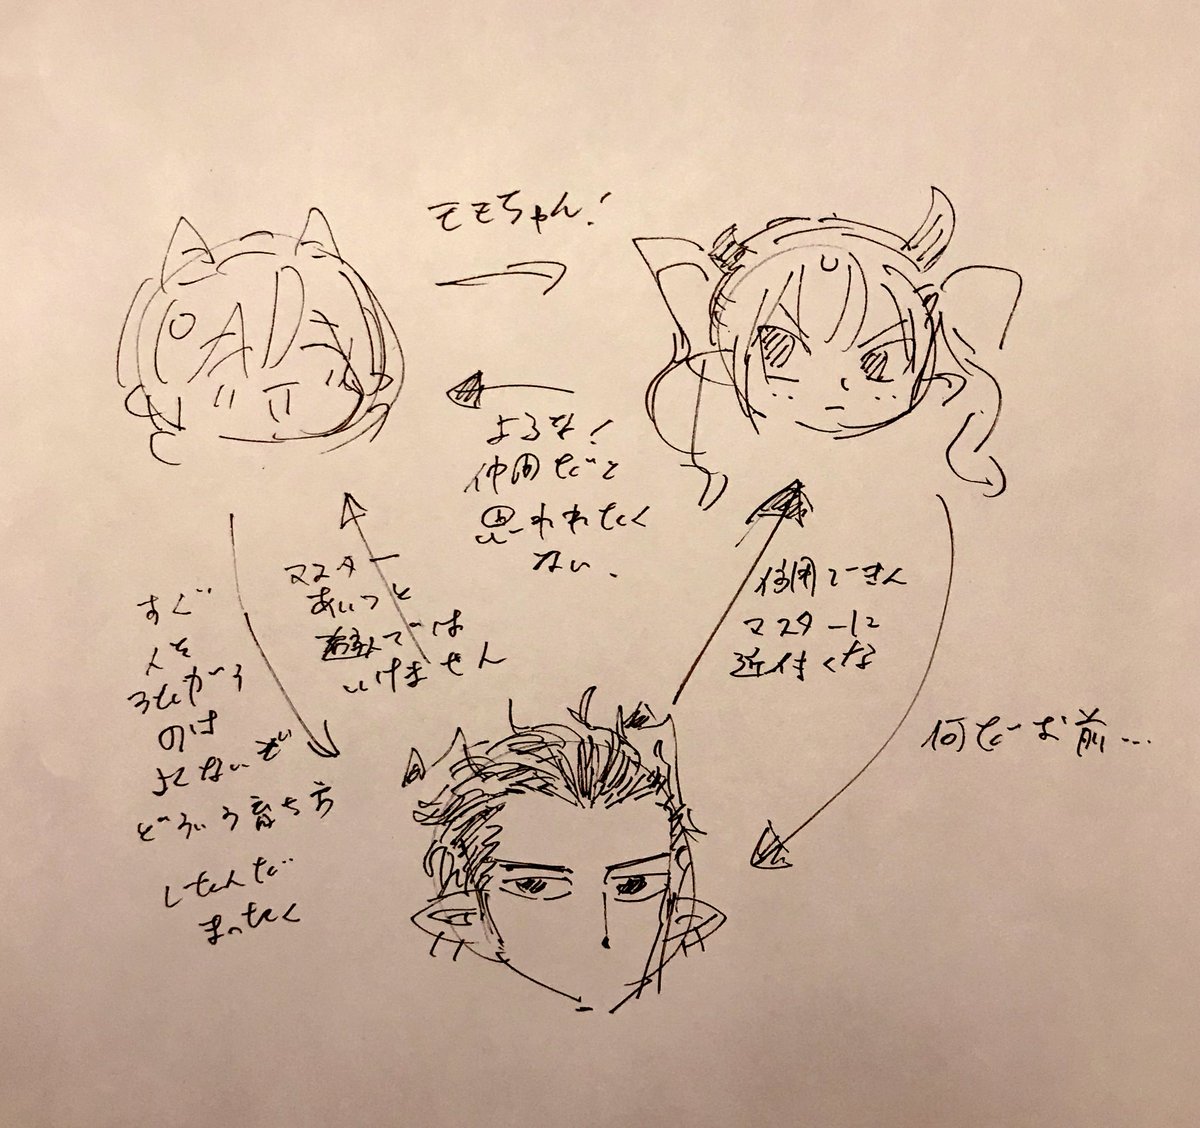 モモちゃん!
よるな!
仲間だと
思われたく
ない、
マスター
あいつと
遊んでは
いけません
すぐ
人を
うたがう
のは
よくないぞ
どういう育ち方
したんだ
まったく
信用できん
マスターに
近付くな
何だお前…